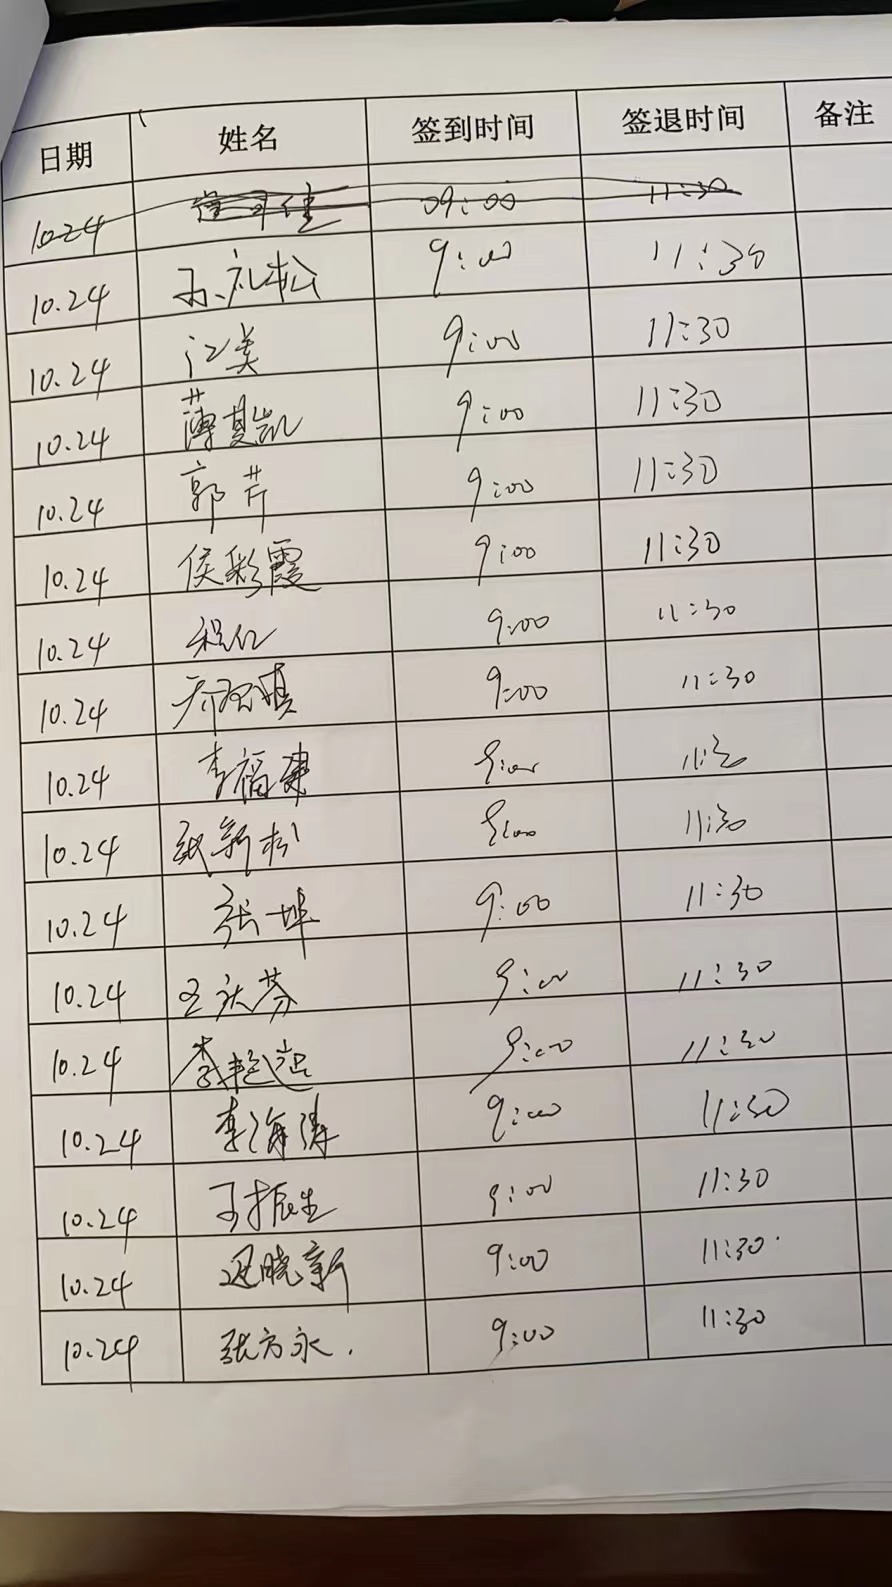 日期 姓名 签到时间 签退时间 备注
10.24 09:00 11:30
10.24 孙礼松 9:00 11:30
10.24 江美 9:00 11:30
10.24 薄其凯 9:00 11:30
10.24 郭芹 9:00 11:30
10.24 侯彩霞 9:00 11:30
10.24 9:00 11:30
10.24 9:00 11:30
10.24 李福建 9:00 11:30
10.24 张新松 9:00 11:30
10.24 张坤 9:00 11:30
10.24 9:00 11:30
10.24 9:00 11:30
10.24 李海涛 9:00 11:30
10.24 王振生 9:00 11:30
10.24 迟晓新 9:00 11:30
10.24 张方永. 9:00 11:30